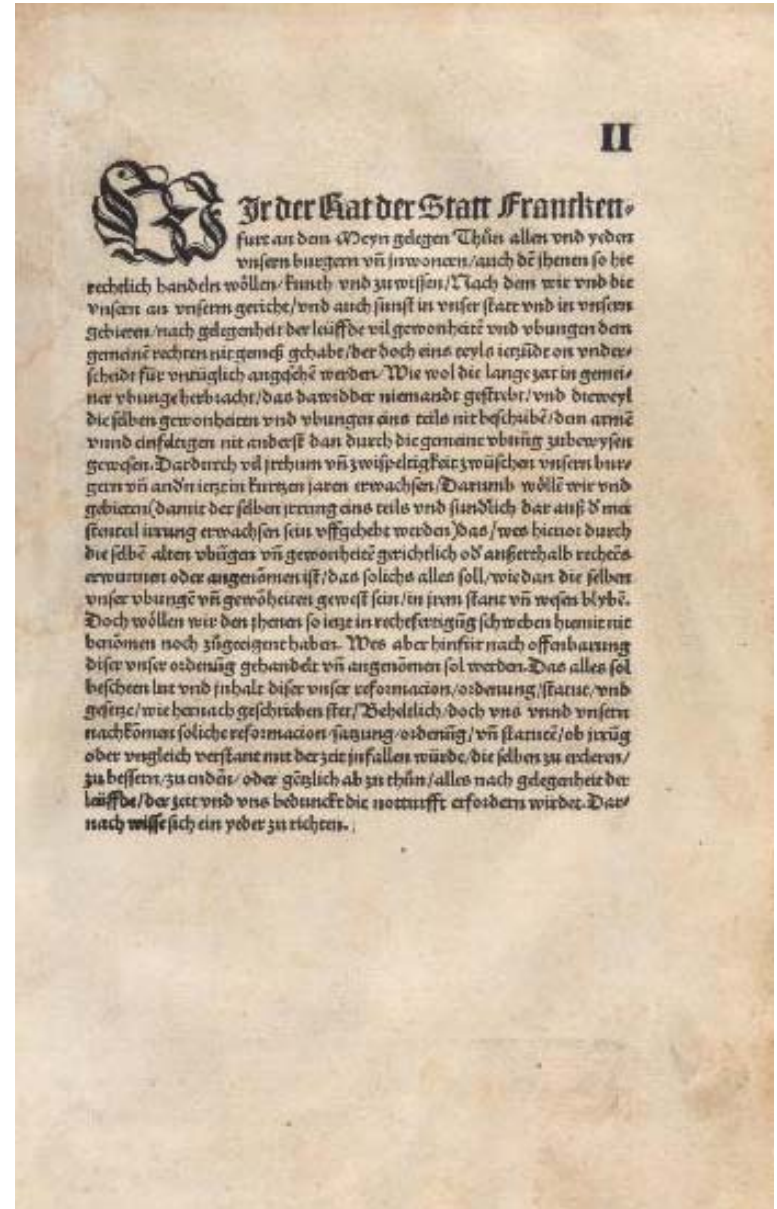 II
WIr der Rat der Statt Francken⸗
furt an dem Meyn gelegen Thůn allen vnd yeden
vnsern burgern vñ jnwonern/auch dē jhenen so hie
rechtlich handeln wöllen/kunth vnd zu wissen/Nach dem wir vnd die
vnsern an vnserm gericht/vnd auch sunst in vnser statt vnd in vnsern
gebieten/nach gelegenheit der leüffde vil gewonheitē vnd vbungen dem
gemeinē rechten nit gemeß gehabt/der doch eins teyls ietzūdt on vnder⸗
scheidt für vntüglich angesehē werden/Wie wol die lange zeit in gemei⸗
ner vbunge herbracht/das dawidder niemandt gestrebt/vnd dieweyl
die selben gewonheiten vnd vbungen eins teils nit beschribē/dem armē
vnnd einfeltigen nit anderst dan durch die gemeine vbūng zubewysen
gewesen. Dardurch vil jrthum vñ zwispeltigkeit zwüschen vnsern bur⸗
gern vñ andn̄ ietzt in kurtzen jaren erwachsen/Darumb wöllē wir vnd
gebieten(damit der selben jrrung eins teils vnd sündlich dar auß d̄ mei
stenteil irrung erwachsen sein vffgehebt werden)das/wes hieuor durch
die selbē alten vbūgen vñ gewonheitē gerichtlich od̄ außerthalb rechtēs
erwunnen oder angenōmen ist/das solichs alles soll/wie dan die selben
vnser vbungē vñ gewōheiten gewest sein/in jrem stant vñ wesen blybē.
Doch wöllen wir den jhenen so ietzt in rechtfertigūg schweben hiemit nit
benōmen noch zůgeeigent haben. Wes aber hinfür nach offenbarung
diser vnser ordenūg gehandelt vñ angenōmen sol werden. Das alles sol
bescheen lut vnd jnhalt diser vnser reformacion/ordenung/statut/vnd
gesetze/wie hernach geschrieben stet/Beheltlich/doch vns vnnd vnsern
nachkōmen soliche reformacion/satzung/ordenūg/vñ statutē/ob jrrūg
oder vngleich verstant mit der zeit jnfallen würde/die selben zu ercleren/
zu bessern/zu endēn/oder gētzlich ab zu thůn/alles nach gelegenheit der
leüffde/der zeit vnd vns bedunckt die notturfft erfordern wirdet. Dar⸗
nach wisse sich ein yeder zu richten.